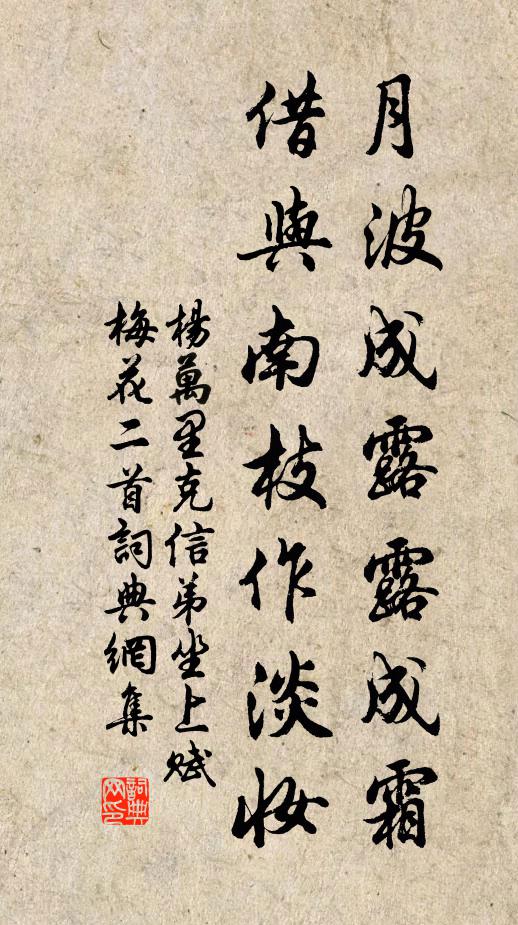 月波成露露成霜
借與南枝作淡妝
楊萬里克信弟坐上賦
梅花二首詞典網集
詞典網印